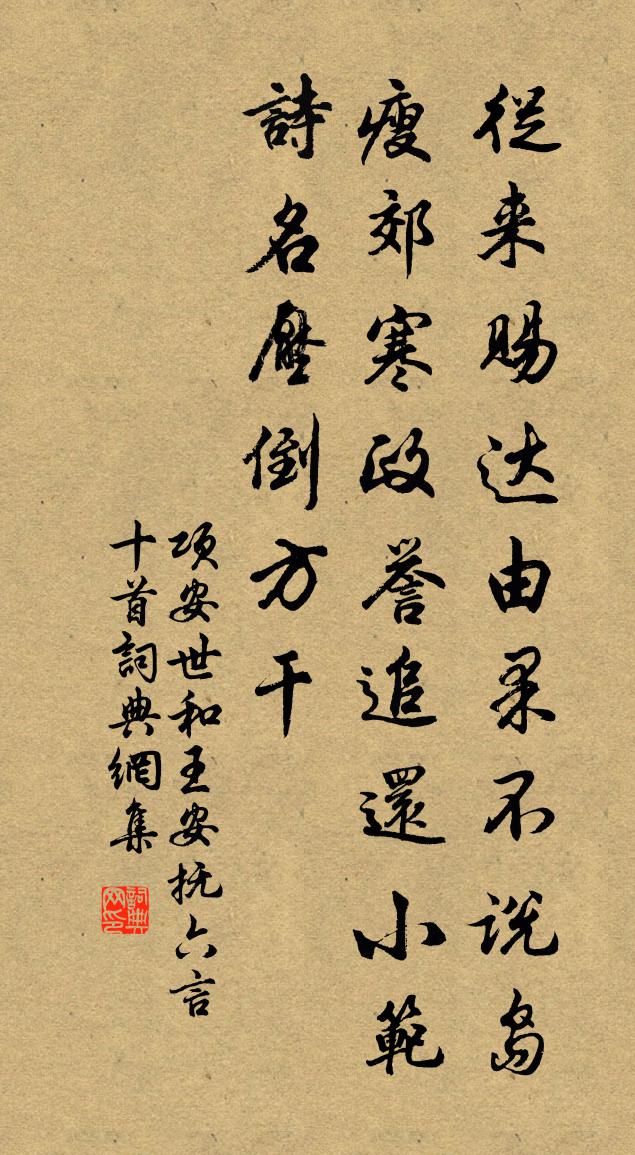 從来賜达由果不说島
瘦郊寒政誉追還小範
詩名壓倒方干
项安世和王安抚六言
十首詞典網集
詞典网印